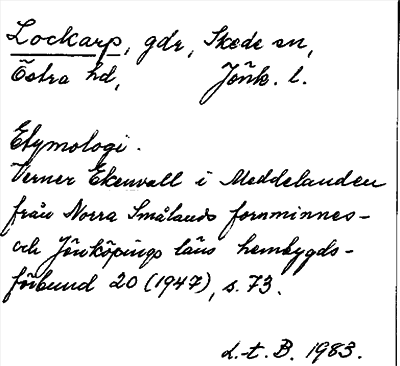 Lockarp, gdr, Skede sn,
Östra hd, Jönk. l.
Etymologi.
Verner Ekenvall i Meddelanden
från Norra Smålands fornminnes-
och Jönköpings läns hembygds-
förbund 20 (1947), s. 73.
L.-t. B. 1983.